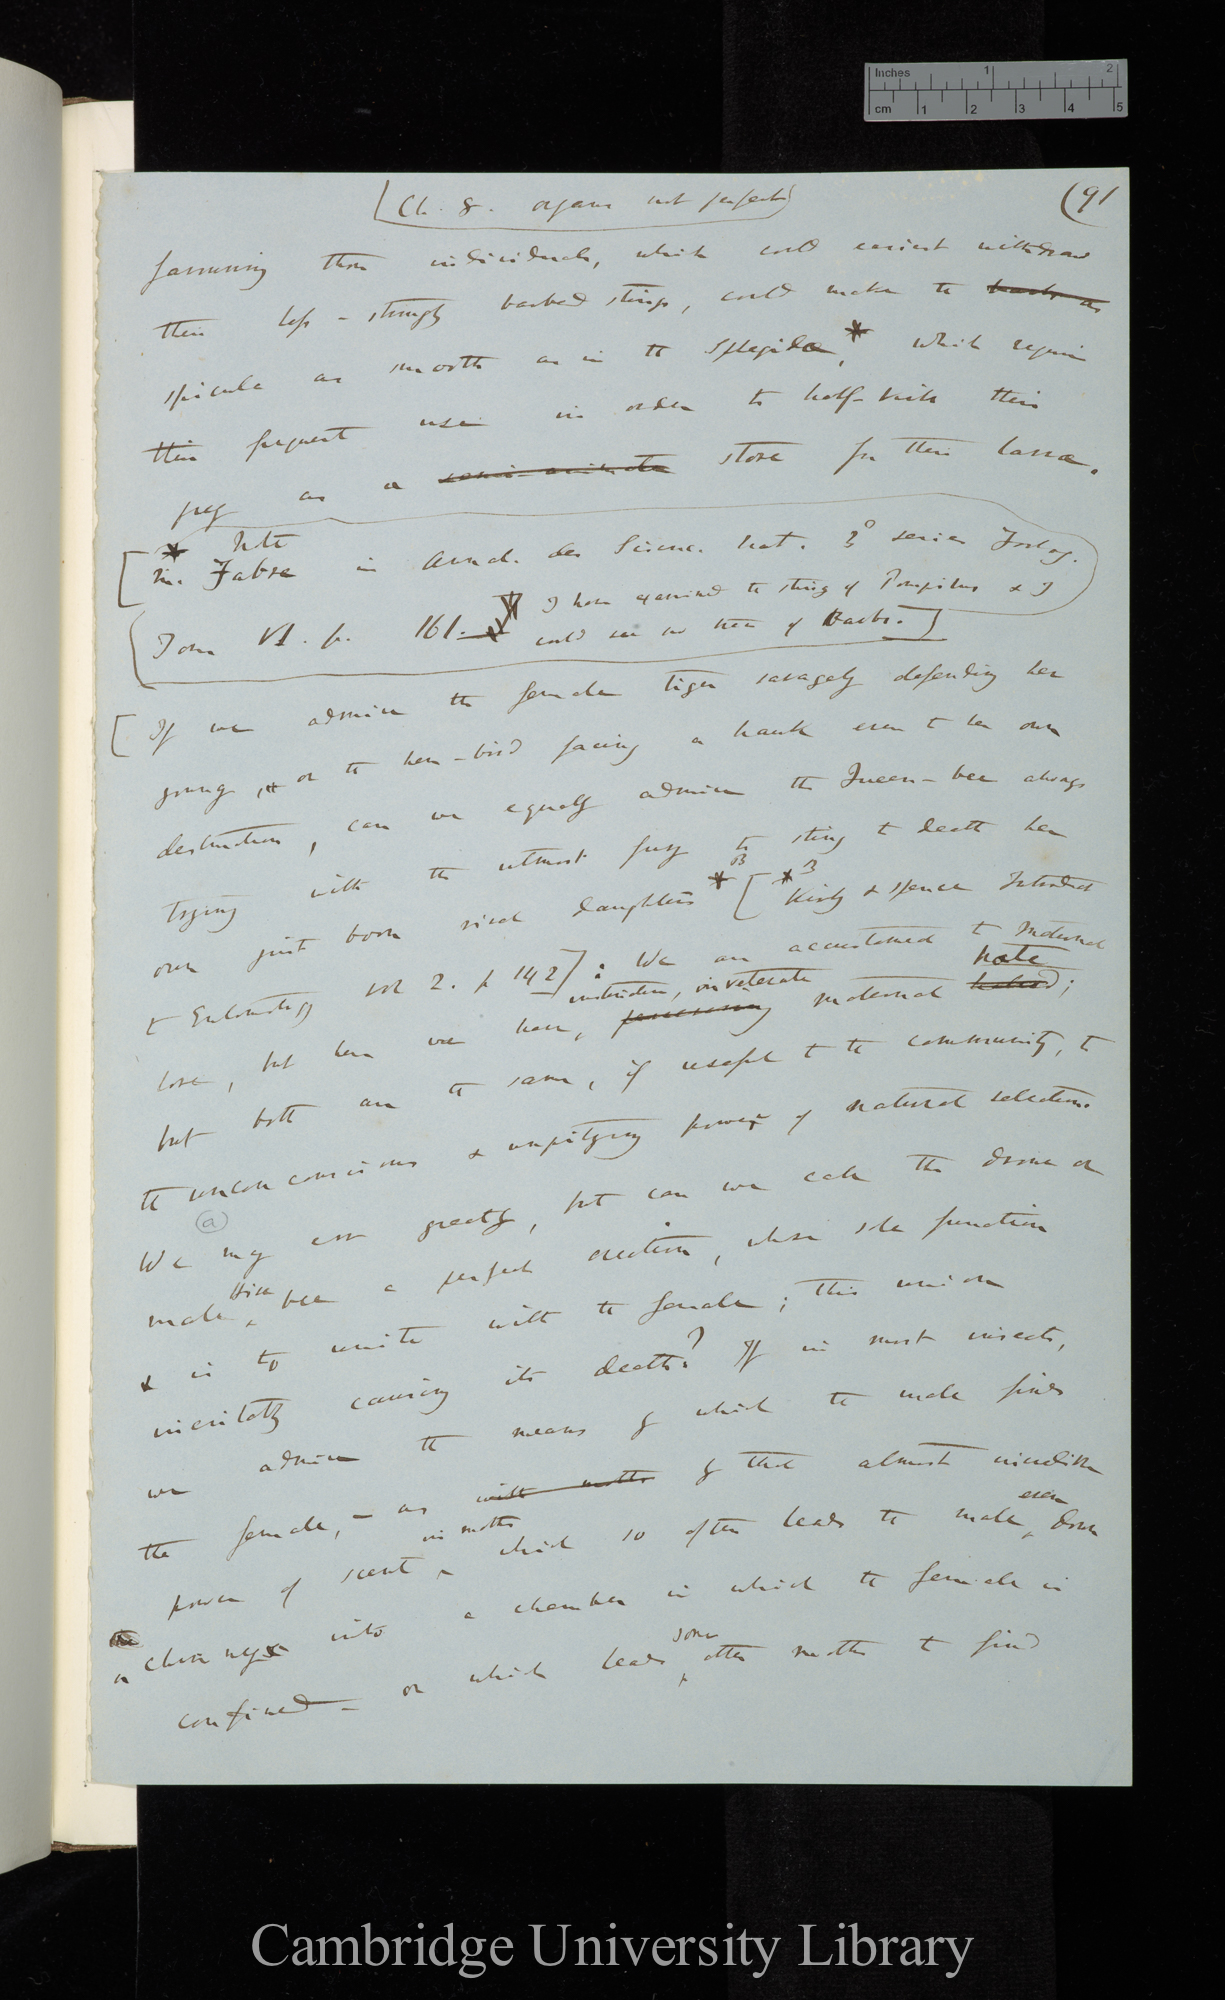 Inches 1 2
cm 1 2 3 4 5
(Ch. 8. organs not perfect)
(91
favouring those individuals, which could easiest withdraw
their less-strongly barbed stings, could make the barbs as
spicula as smooth as in the Sphegidæ,* which require
their frequent use in order to half-kill their
prey as a semi-animate store for their larvæ.
[* Note
M. Fabre in Annal. des Scienc. Nat. 3° series Zoolog.
Tom VI. p. 161. I have examined the sting of Pompilus & I
could see no trace of Barbs.]
[If we admire the female tiger savagely defending her
young, or the hen-bird facing a hawk even to her own
destruction, can we equally admire the Queen-bee always
trying with the utmost fury to sting to death her
own just born rival daughters *3 [*3 Kirby & Spence Introduct
to Entomology vol 2. p 142]: We are accustomed to maternal
love, but here we have, instinctive, inveterate maternal hate;
but both are the same, if useful to the community, to
the unconscious & unpitying power of natural selection.
(a)
We may err greatly, but can we call the drone or
male Hive bee a perfect creation, whose sole function
is to unite with the female; this union
inevitably causing its death? If in most insects,
we admire the means by which the male finds
the female, – as with moths by that almost incredible
power of scent in moths which so often leads the male even down
a chimney into a chamber in which the female is
confined – or which leads some other moths to find
Cambridge University Library